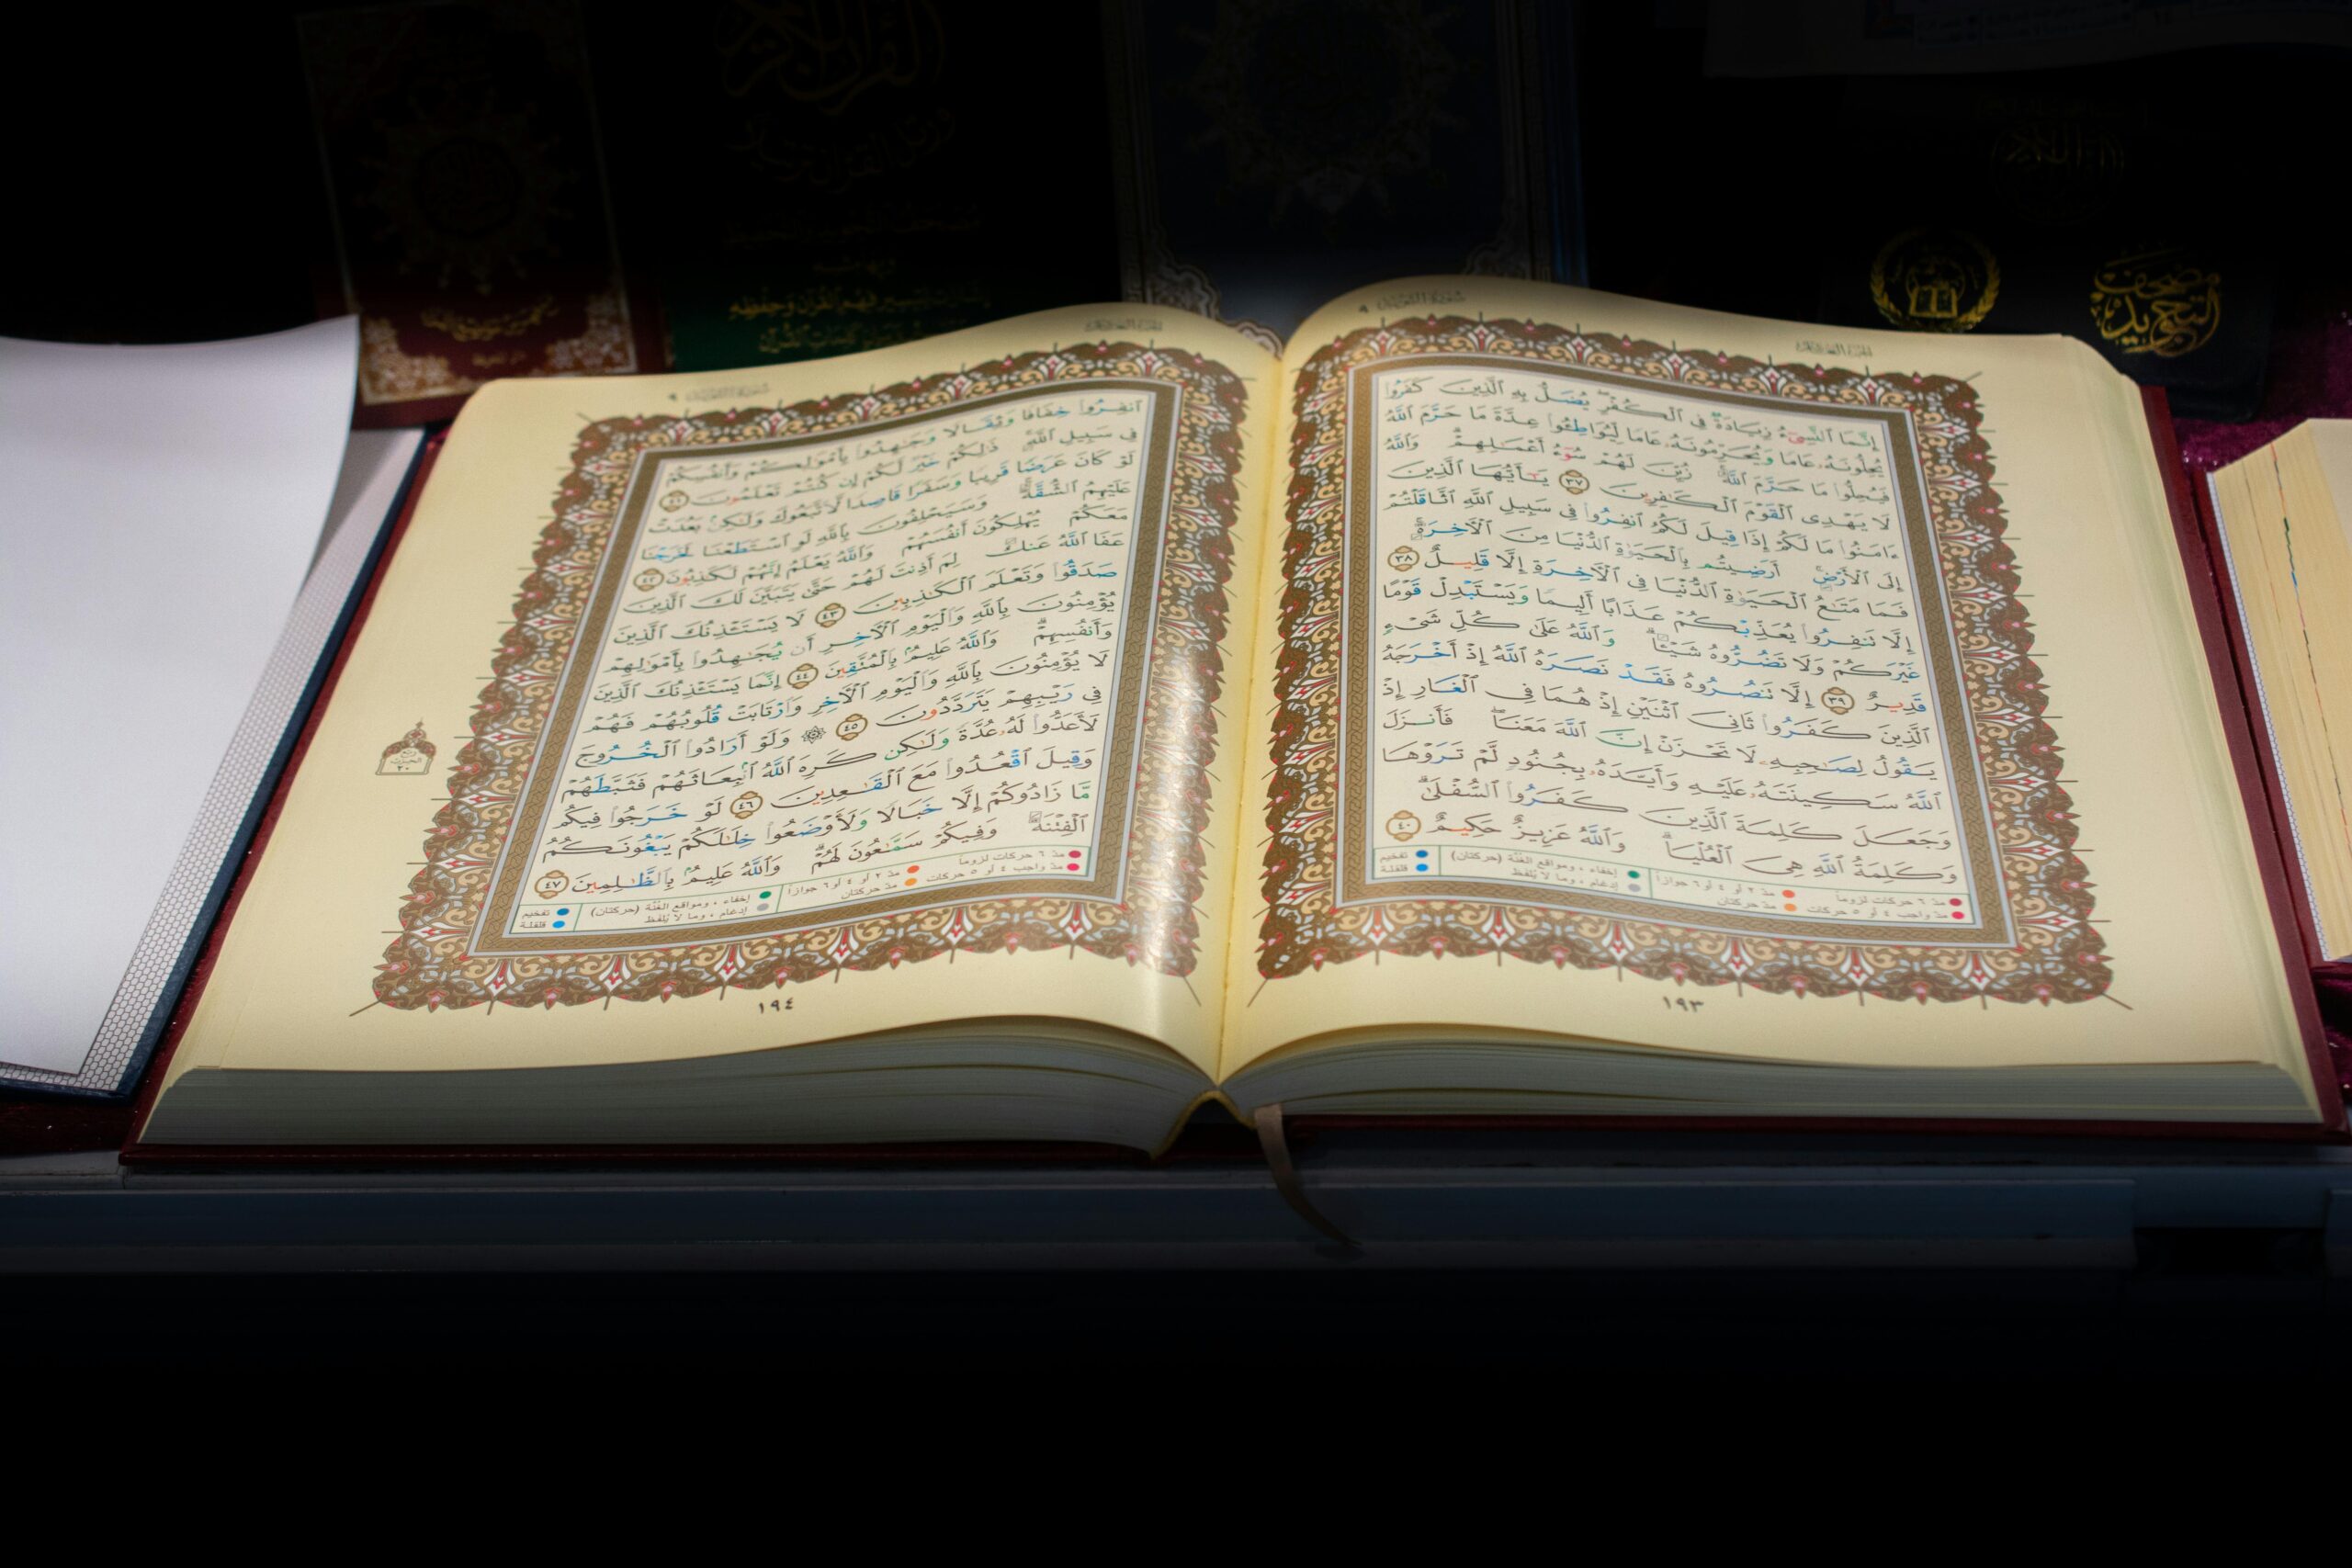 إِنَّمَا ٱلنَّسِىٓءُ زِيَادَةٌ فِى ٱلْكُفْرِ ۖ يُضَلُّ بِهِ ٱلَّذِينَ كَفَرُوا۟
يُحِلُّونَهُۥ عَامًا وَيُحَرِّمُونَهُۥ عَامًا لِّيُوَاطِـُٔوا۟ عِدَّةَ مَا حَرَّمَ ٱللَّهُ
فَيُحِلُّوا۟ مَا حَرَّمَ ٱللَّهُ ۚ زُيِّنَ لَهُمْ سُوٓءُ أَعْمَـٰلِهِمْ ۗ وَٱللَّهُ
لَا يَهْدِى ٱلْقَوْمَ ٱلْكَـٰفِرِينَ ٣٧ يَـٰٓأَيُّهَا ٱلَّذِينَ
ءَامَنُوا۟ مَا لَكُمْ إِذَا قِيلَ لَكُمُ ٱنفِرُوا۟ فِى سَبِيلِ ٱللَّهِ ٱثَّاقَلْتُمْ
إِلَى ٱلْأَرْضِ ۚ أَرَضِيتُم بِٱلْحَيَوٰةِ ٱلدُّنْيَا مِنَ ٱلْـَٔاخِرَةِ ۚ
فَمَا مَتَـٰعُ ٱلْحَيَوٰةِ ٱلدُّنْيَا فِى ٱلْـَٔاخِرَةِ إِلَّا قَلِيلٌ ٣٨
إِلَّا تَنفِرُوا۟ يُعَذِّبْكُمْ عَذَابًا أَلِيمًا وَيَسْتَبْدِلْ قَوْمًا
غَيْرَكُمْ وَلَا تَضُرُّوهُ شَيْـًٔا ۗ وَٱللَّهُ عَلَىٰ كُلِّ شَىْءٍ
قَدِيرٌ ٣٩ إِلَّا تَنصُرُوهُ فَقَدْ نَصَرَهُ ٱللَّهُ إِذْ أَخْرَجَهُ
ٱلَّذِينَ كَفَرُوا۟ ثَانِىَ ٱثْنَيْنِ إِذْ هُمَا فِى ٱلْغَارِ إِذْ
يَقُولُ لِصَـٰحِبِهِۦ لَا تَحْزَنْ إِنَّ ٱللَّهَ مَعَنَا ۖ فَأَنزَلَ
ٱللَّهُ سَكِينَتَهُۥ عَلَيْهِ وَأَيَّدَهُۥ بِجُنُودٍ لَّمْ تَرَوْهَا
وَجَعَلَ كَلِمَةَ ٱلَّذِينَ كَفَرُوا۟ ٱلسُّفْلَىٰ ۗ
وَكَلِمَةُ ٱللَّهِ هِىَ ٱلْعُلْيَا ۗ وَٱللَّهُ عَزِيزٌ حَكِيمٌ ٤٠
مدّ ٦ حركات لزوماً مدّ ٢ أو ٤ أو ٦ جوازاً إخفاء ، ومواقع الغُنَّة (حركتان) تفخيم
مدّ واجب ٤ أو ٥ حركات مدّ حركتان إدغام ، وما لا يُلفظ قلقلة
١٩٣
ٱنفِرُوا۟ خِفَافًا وَثِقَالًا وَجَـٰهِدُوا۟ بِأَمْوَٰلِكُمْ وَأَنفُسِكُمْ
فِى سَبِيلِ ٱللَّهِ ۚ ذَٰلِكُمْ خَيْرٌ لَّكُمْ إِن كُنتُمْ تَعْلَمُونَ ٤١
لَوْ كَانَ عَرَضًا قَرِيبًا وَسَفَرًا قَاصِدًا لَّٱتَّبَعُوكَ وَلَـٰكِنۢ بَعُدَتْ
عَلَيْهِمُ ٱلشُّقَّةُ ۚ وَسَيَحْلِفُونَ بِٱللَّهِ لَوِ ٱسْتَطَعْنَا لَخَرَجْنَا
مَعَكُمْ يُهْلِكُونَ أَنفُسَهُمْ وَٱللَّهُ يَعْلَمُ إِنَّهُمْ لَكَـٰذِبُونَ ٤٢
عَفَا ٱللَّهُ عَنكَ لِمَ أَذِنتَ لَهُمْ حَتَّىٰ يَتَبَيَّنَ لَكَ ٱلَّذِينَ
صَدَقُوا۟ وَتَعْلَمَ ٱلْكَـٰذِبِينَ ٤٣ لَا يَسْتَـْٔذِنُكَ ٱلَّذِينَ
يُؤْمِنُونَ بِٱللَّهِ وَٱلْيَوْمِ ٱلْـَٔاخِرِ أَن يُجَـٰهِدُوا۟ بِأَمْوَٰلِهِمْ
وَأَنفُسِهِمْ ۗ وَٱللَّهُ عَلِيمٌۢ بِٱلْمُتَّقِينَ ٤٤ إِنَّمَا يَسْتَـْٔذِنُكَ ٱلَّذِينَ
لَا يُؤْمِنُونَ بِٱللَّهِ وَٱلْيَوْمِ ٱلْـَٔاخِرِ وَٱرْتَابَتْ قُلُوبُهُمْ فَهُمْ
فِى رَيْبِهِمْ يَتَرَدَّدُونَ ٤٥ ۞ وَلَوْ أَرَادُوا۟ ٱلْخُرُوجَ
لَأَعَدُّوا۟ لَهُۥ عُدَّةً وَلَـٰكِن كَرِهَ ٱللَّهُ ٱنۢبِعَاثَهُمْ فَثَبَّطَهُمْ
وَقِيلَ ٱقْعُدُوا۟ مَعَ ٱلْقَـٰعِدِينَ ٤٦ لَوْ خَرَجُوا۟ فِيكُم
مَّا زَادُوكُمْ إِلَّا خَبَالًا وَلَأَوْضَعُوا۟ خِلَـٰلَكُمْ يَبْغُونَكُمُ
ٱلْفِتْنَةَ وَفِيكُمْ سَمَّـٰعُونَ لَهُمْ ۗ وَٱللَّهُ عَلِيمٌۢ بِٱلظَّـٰلِمِينَ ٤٧
مدّ ٦ حركات لزوماً مدّ ٢ أو ٤ أو ٦ جوازاً إخفاء ، ومواقع الغُنَّة (حركتان) تفخيم
مدّ واجب ٤ أو ٥ حركات مدّ حركتان إدغام ، وما لا يُلفظ قلقلة
١٩٤
مصحف
التجويد